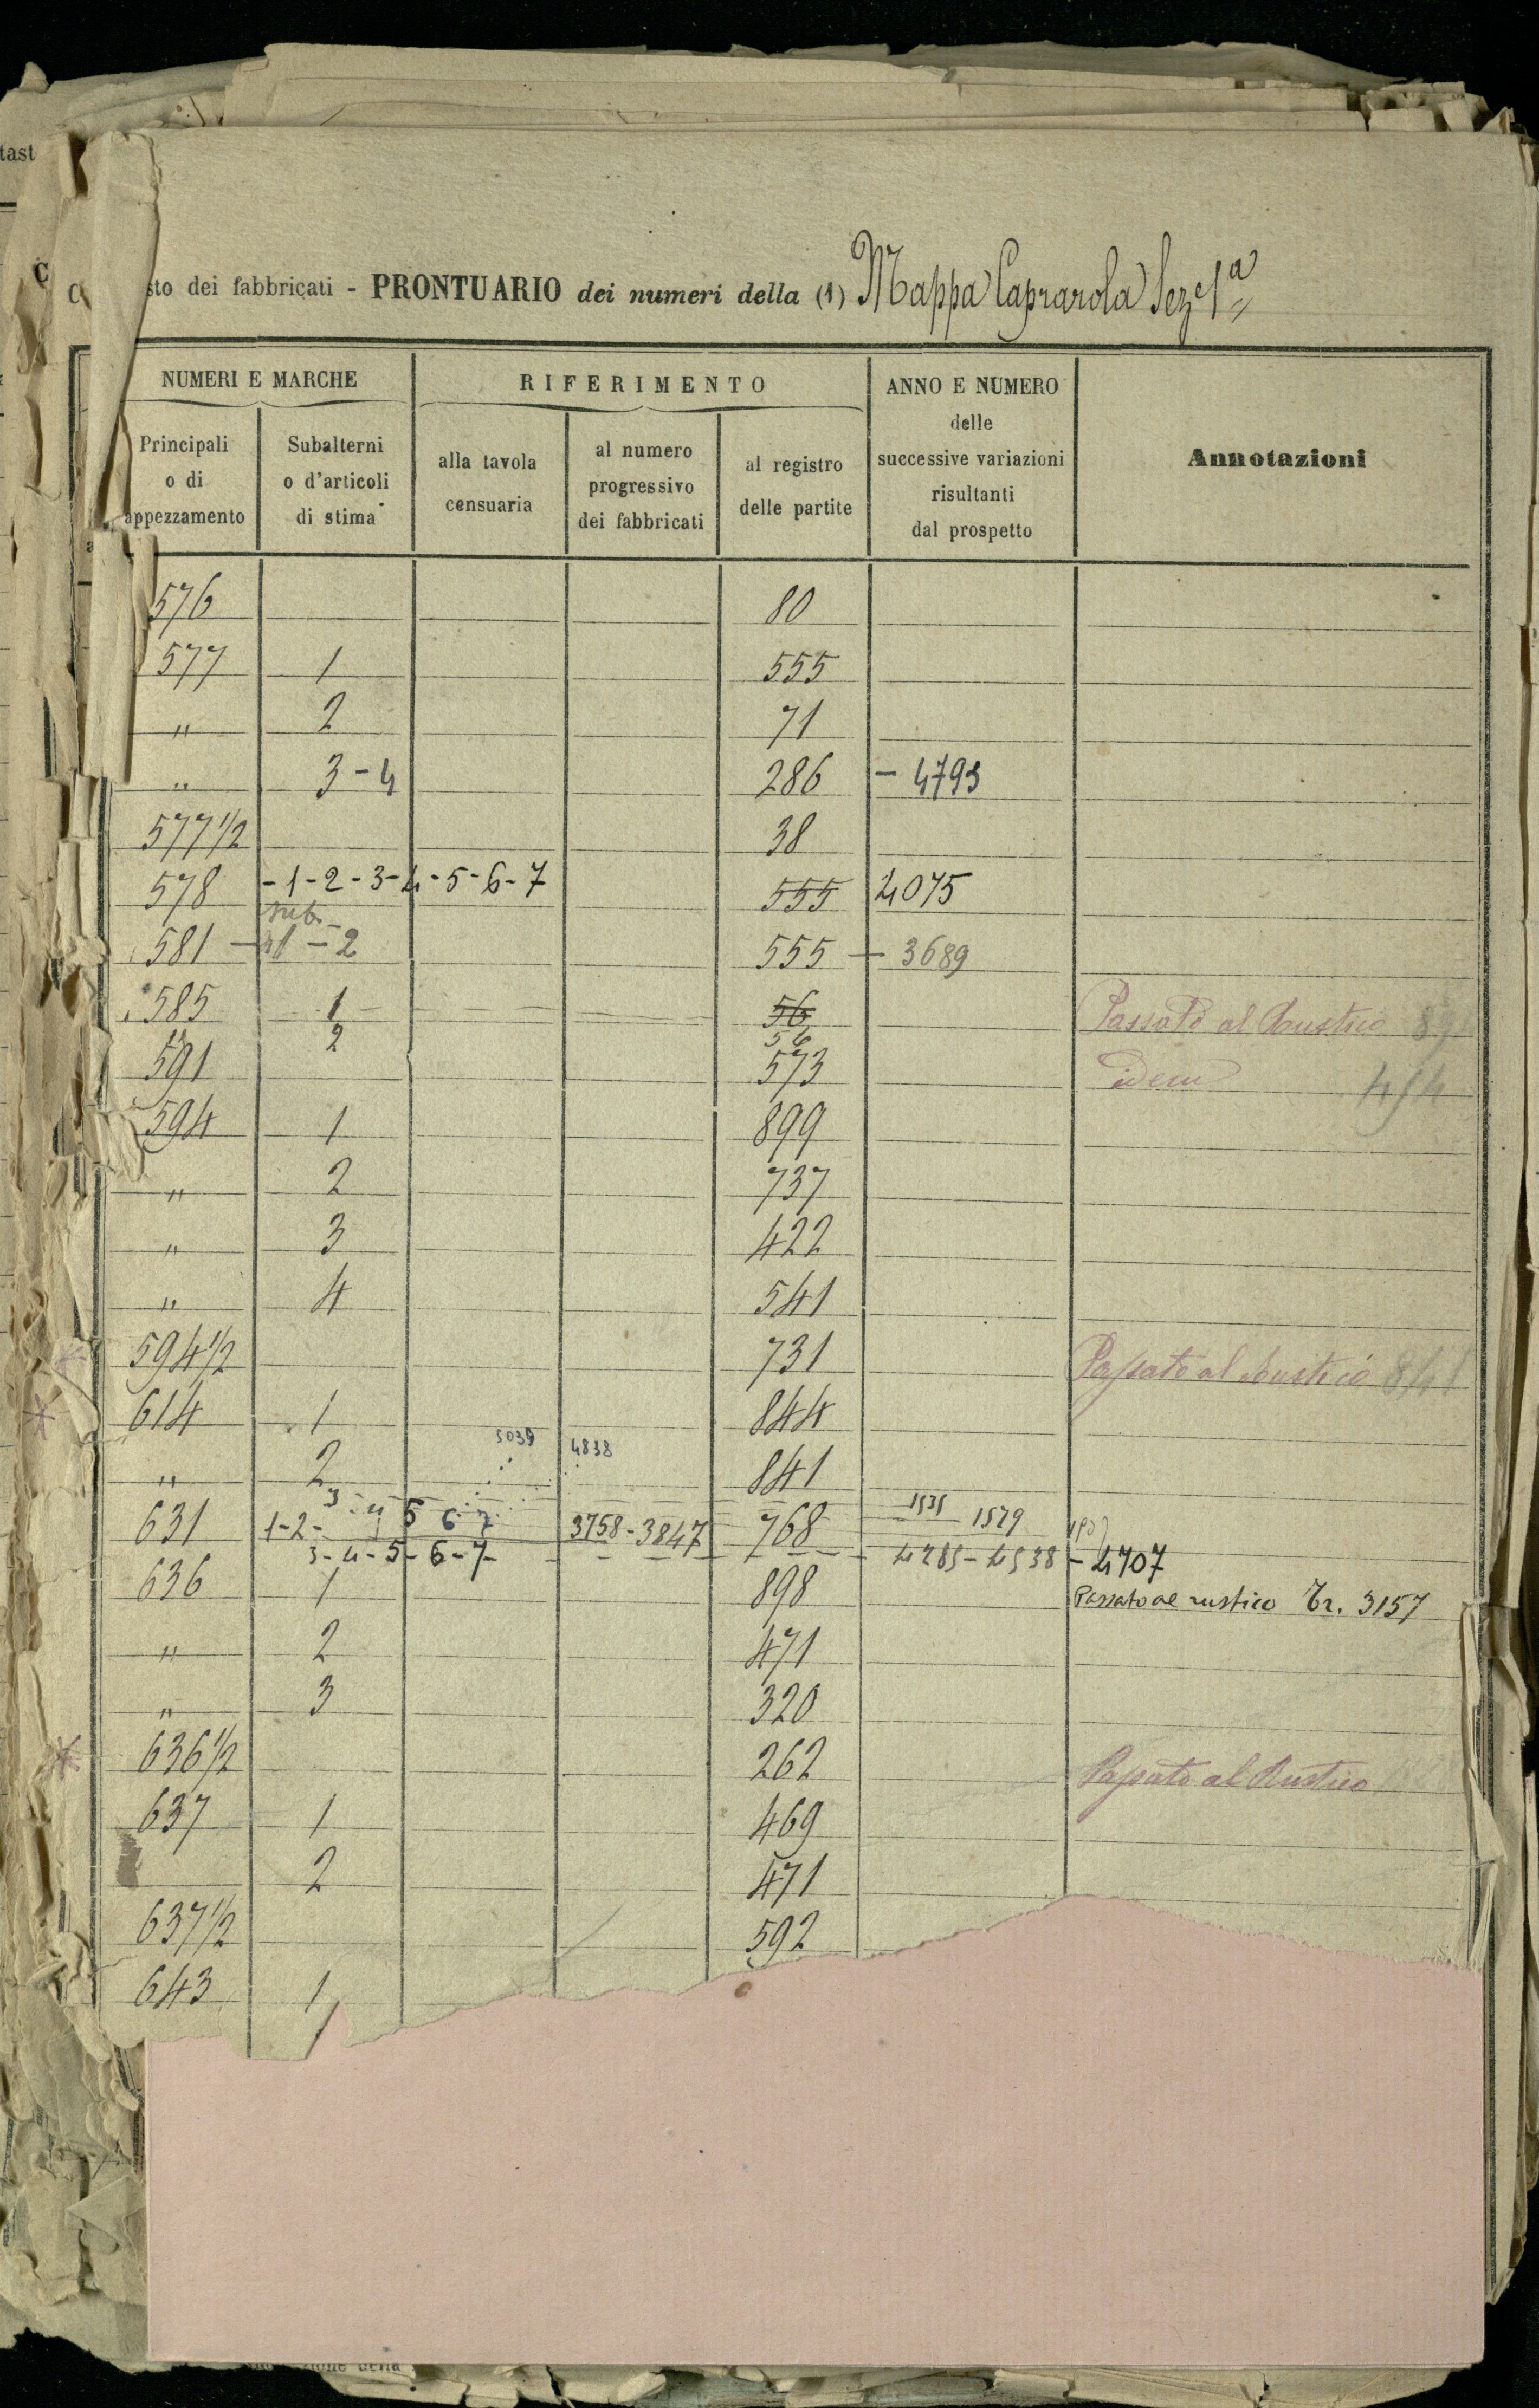 tast
C
C
sto dei fabbricati - PRONTUARIO dei numeri della (1) Mappa Caprarola Sez 1ª
NUMERI E MARCHE
RIFERIMENTO
ANNO E NUMERO
delle
successive variazioni
risultanti
dal prospetto
Annotazioni
Principali
o di
appezzamento
Subalterni
o d'articoli
di stima
alla tavola
censuaria
al numero
progressivo
dei fabbricati
al registro
delle partite
576 80
577 1 555
" 2 71
" 3-4 286 - 4793
577 1/2 38
578 -1-2-3-4-5-6-7 555 4075
sub.
581 - 1 - 2 555 - 3689
585 1 56 Passato al Rustico
" 2 56
591 573 idem
594 1 899
" 2 737
" 3 422
" 4 541
594 1/2 731 Passato al Rustico 841
614 1 844
5039 4838
" 2 841
3 - 4 5 6 7 1579
631 1-2- 3758-3847 768
3-4-5-6-7- 4285-4538 - 4707
636 1 898 Passato al rustico Tr. 3157
" 2 471
" 3 320
636 1/2 262 Passato al Rustico
637 1 469
2 471
637 1/2 592
643 1